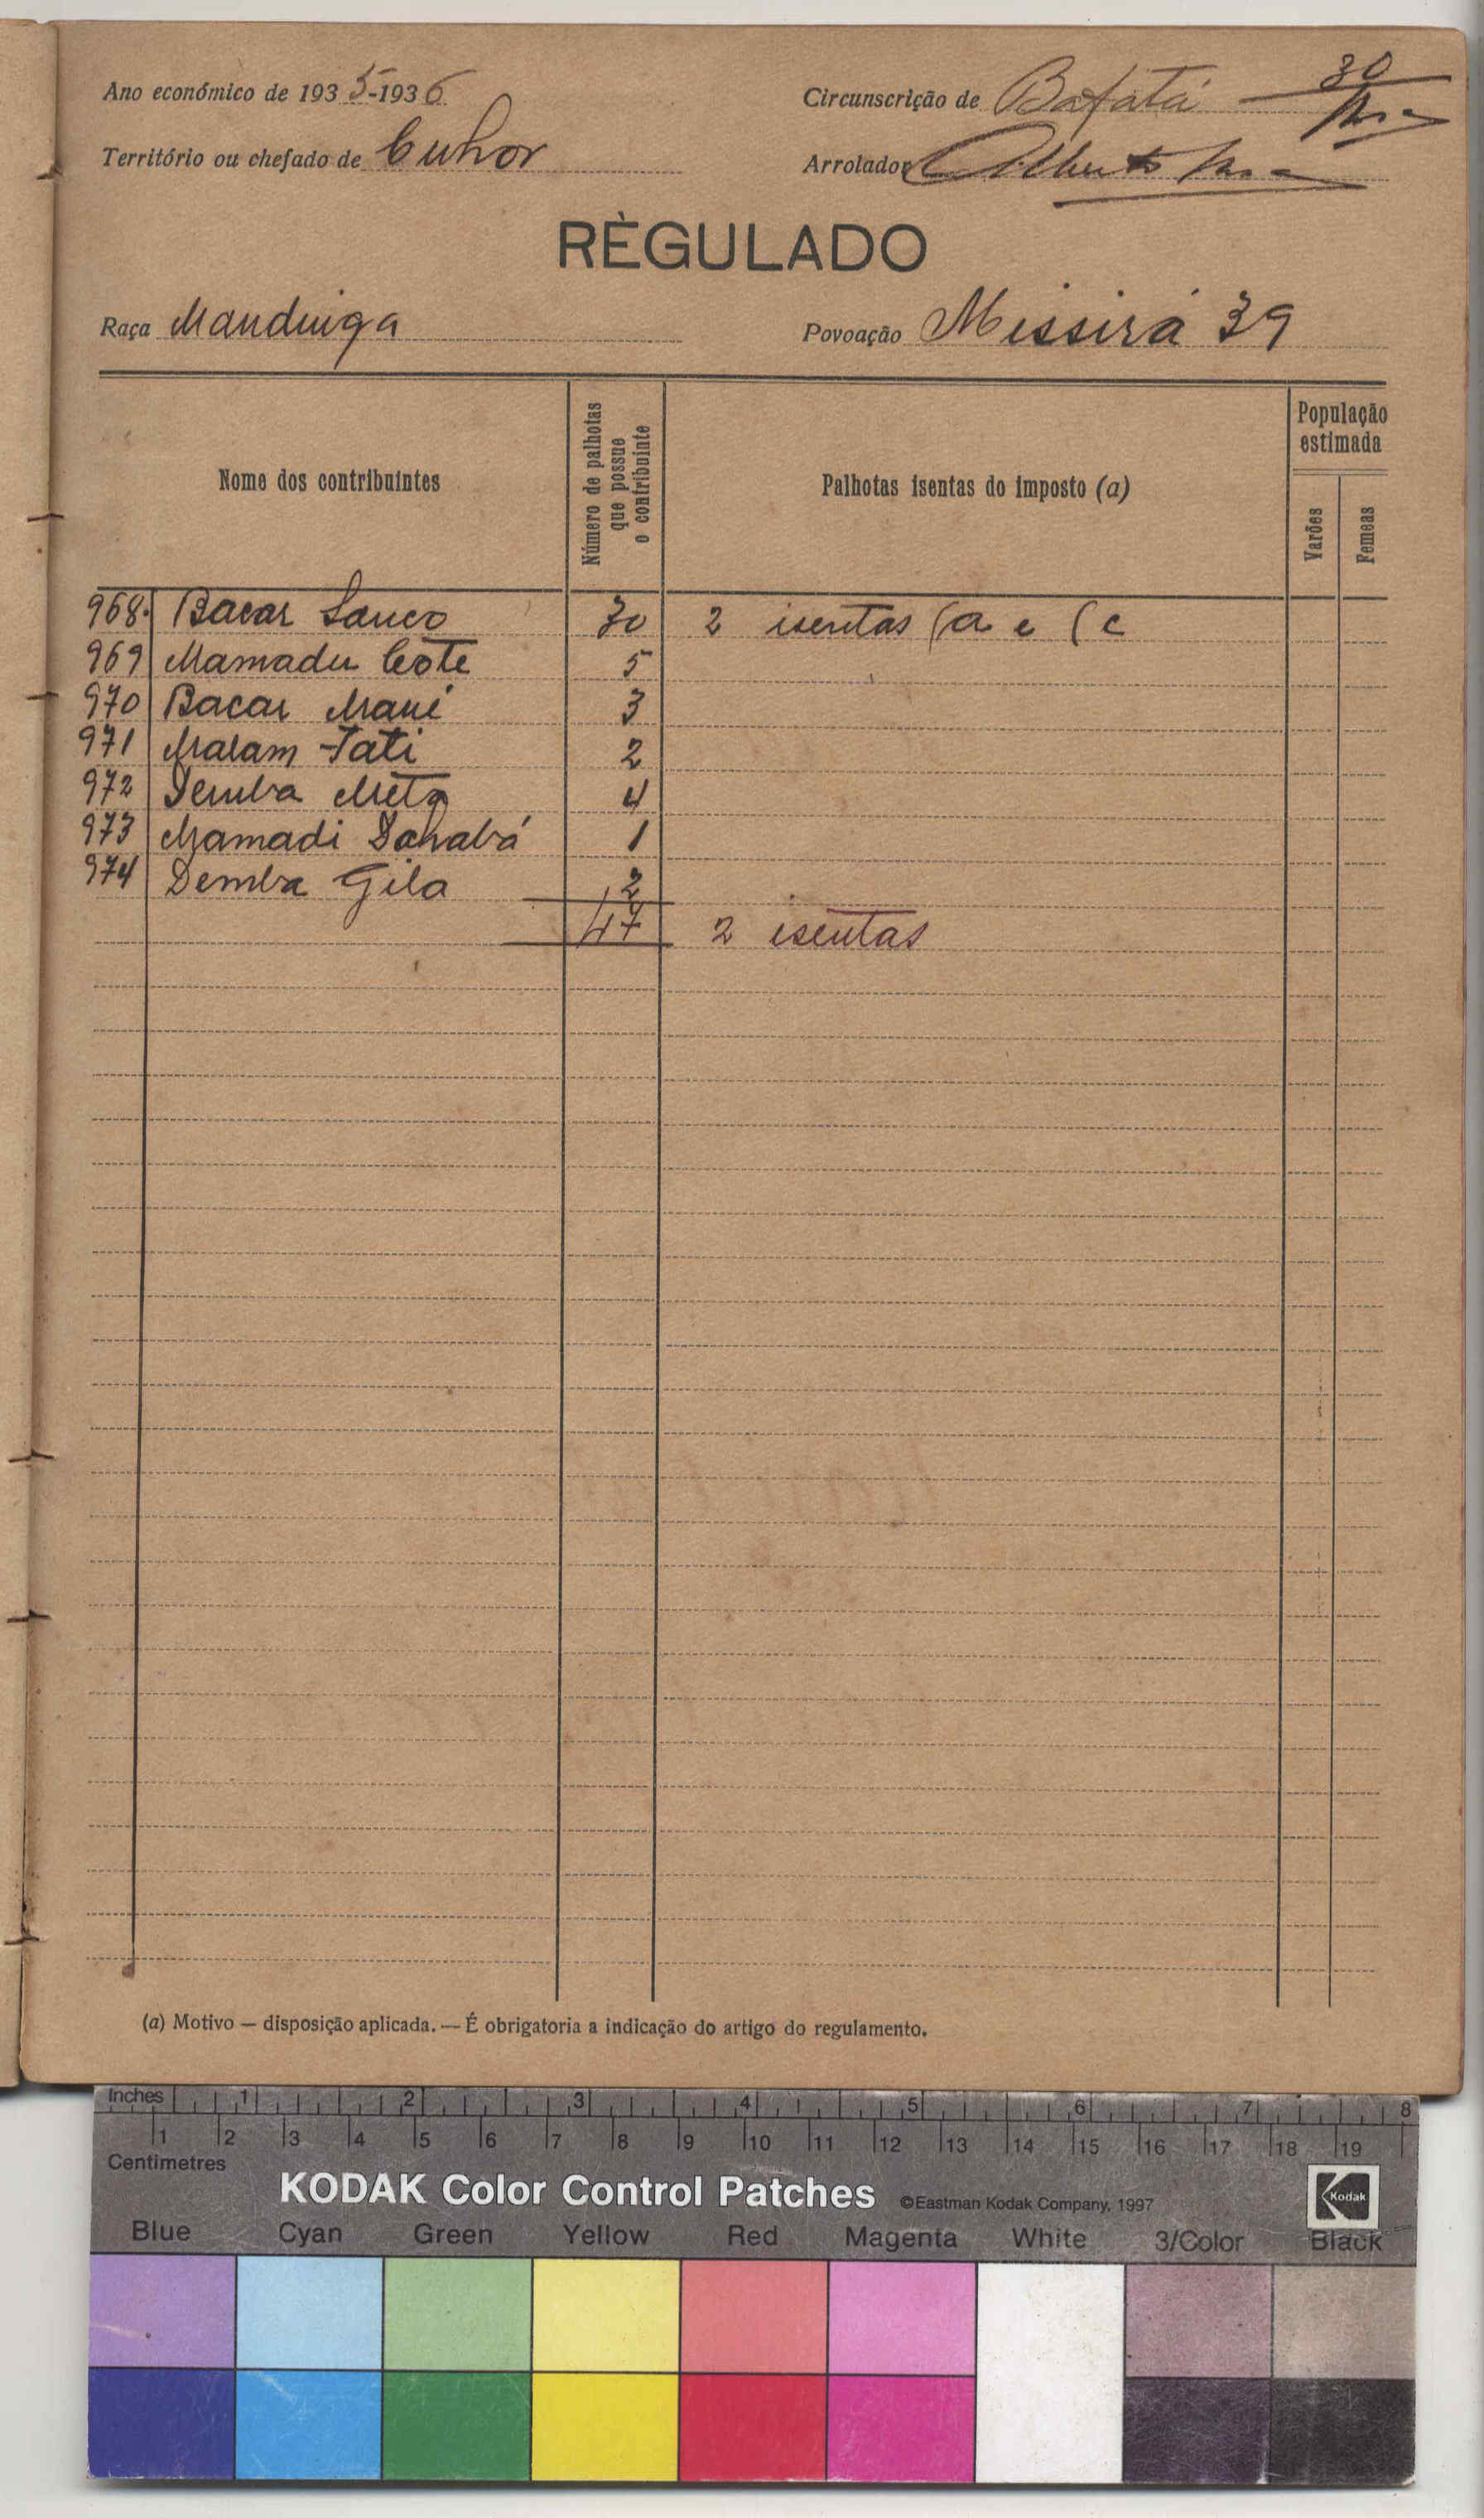 Ano económico de 1935-1936 Circunscrição de Bafatá 30
Território ou chefado de Cuhor Arrolador Alberto
RÈGULADO
Raça Mandinga Povoação Missirá 39
Nome dos contribuintes Número de palhotas que possue o contribuinte Palhotas isentas do imposto (a) População estimada
Varões Femeas
968. Bacar Sanco 30 2 isentas (a e (c
969 Mamadu Cote 5
970 Bacar Mané 3
971 Malam Fati 2
972 Demba Meta 4
973 Mamadi Dahabá 1
974 Demba Gila 2
47 2 isentas
(a) Motivo — disposição aplicada. — É obrigatoria a indicação do artigo do regulamento.
Inches 1 2 3 4 5 6 7 8
1 2 3 4 5 6 7 8 9 10 11 12 13 14 15 16 17 18 19
Centimetres
KODAK Color Control Patches ©Eastman Kodak Company, 1997 Kodak
Blue Cyan Green Yellow Red Magenta White 3/Color Black